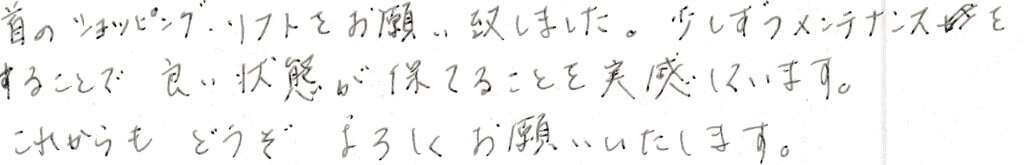 首のショッピング・リフトをお願い致しました。少しずつメンテナンスを
することで良い状態が保てることを実感しています。
これからもどうぞよろしくお願いいたします。